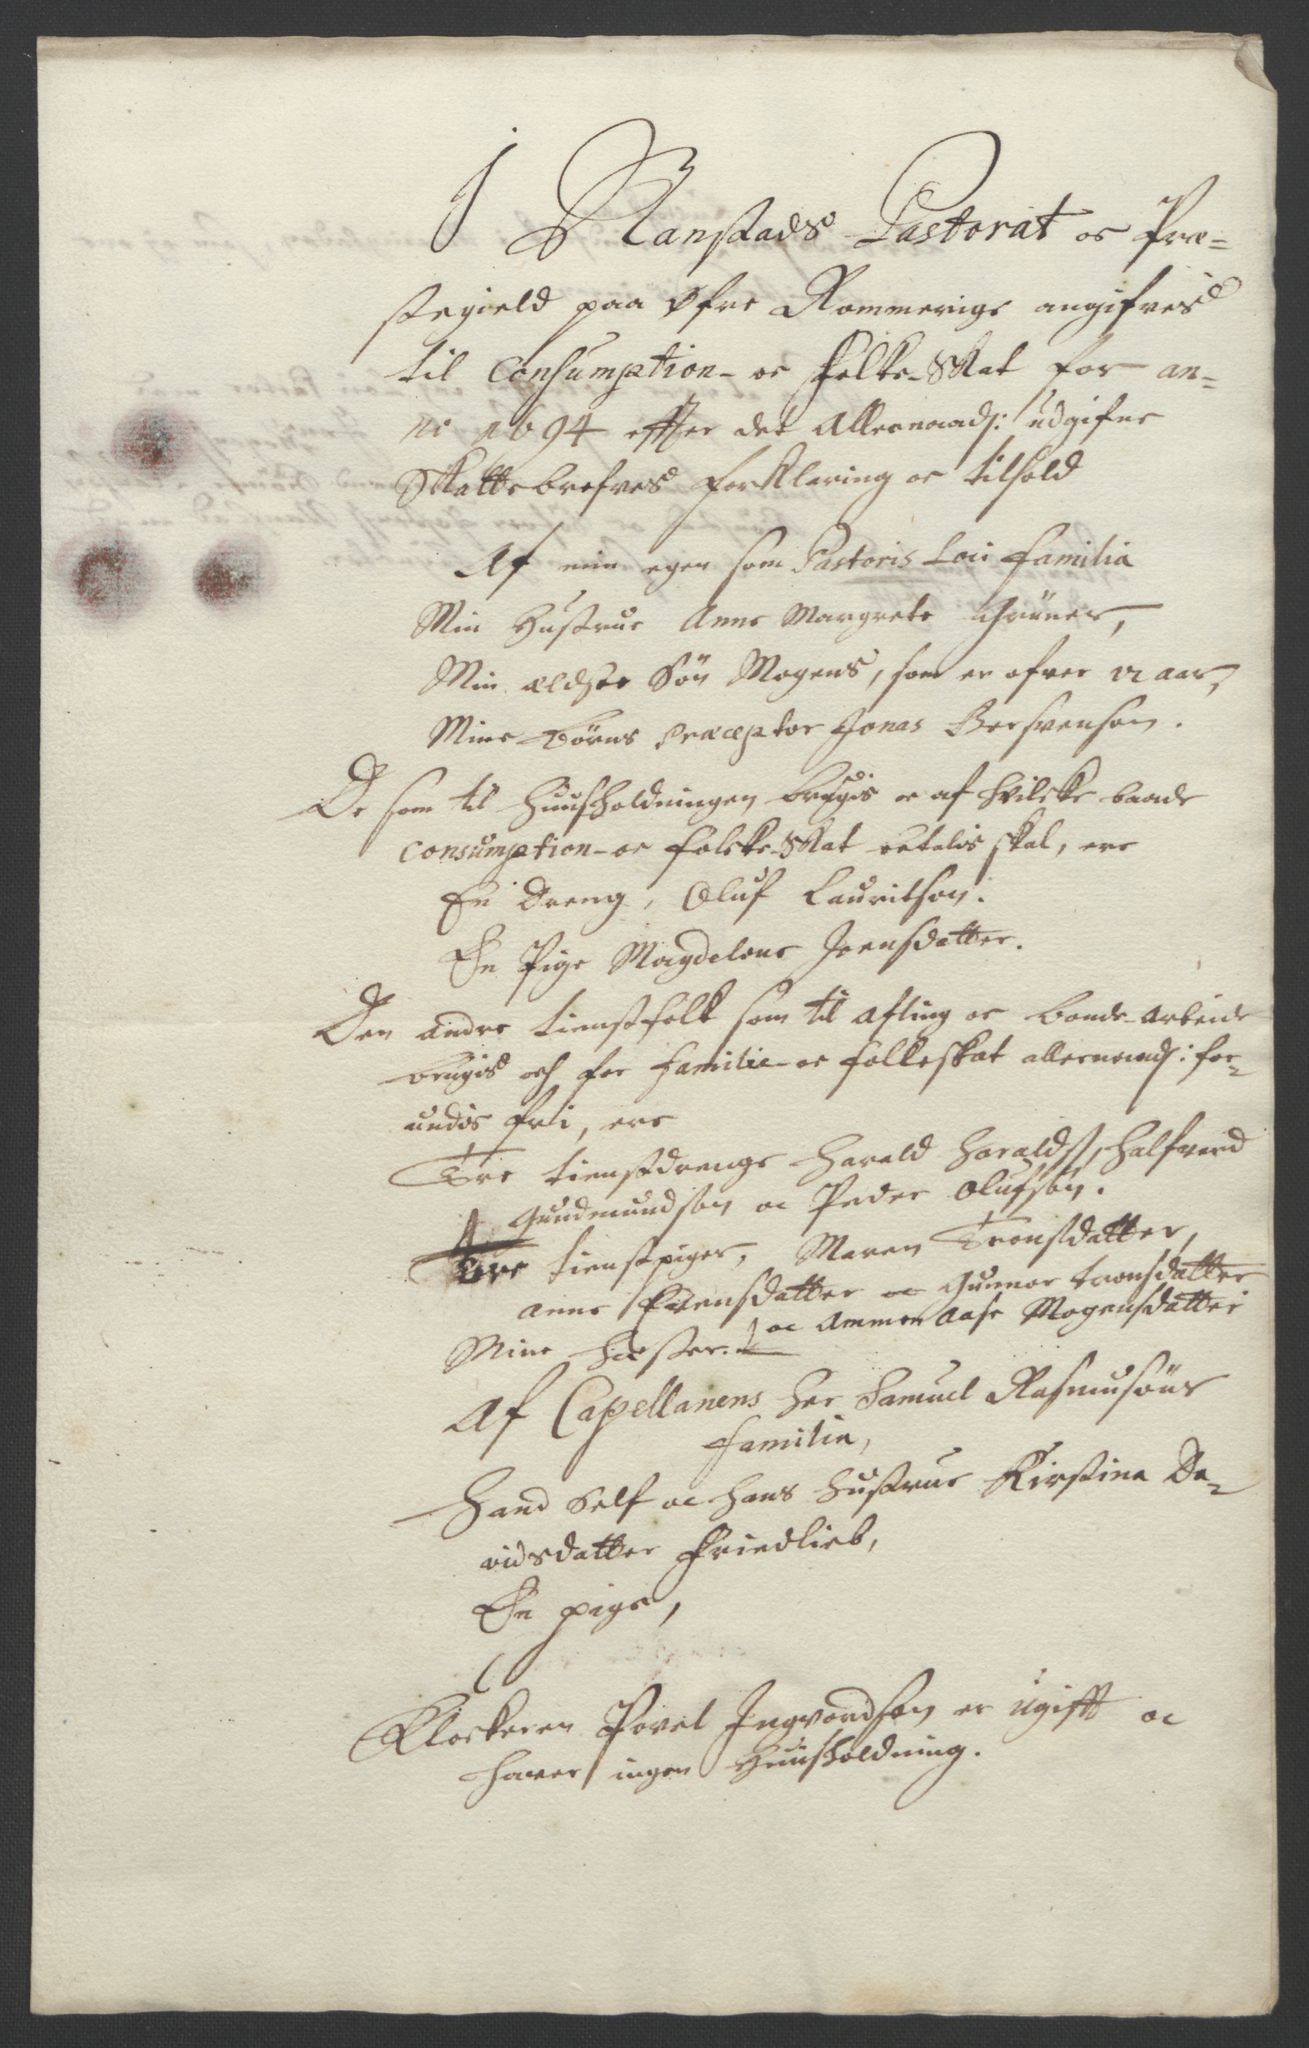 I Nanstads Pastorat oc Præ-
stegield paa Øfre Rommerige angifves
til Consumption- oc folke-Skat for an-
no 1694 effter det Allernaads: udgifne
Skattebrefves forklaring oc tilhold
Af min egen som Pastoris Loci familia
Min Hustrue Anne Margrete Grüner,
Min ældste Sön Mogens, som er ofver 12 aar,
Mine börns Præceptor Jonas Bersvenson.
De som til Huusholdningen brugis oc af hvilcke baade
Consumption- oc folcke-Skat betalis skal, ere
En Dreng, Oluf Lauritson.
En Pige Magdelene Joensdatter.
Den andre tienstfolk som til afling oc bonde-arbeide
brugis oc for familie- oc folkeskat allernaads: for-
undis fri, ere
Tre tienstdrenge Harald Haralds, Halfvord
Gundmundson oc Peder Olufsön.
Tre tienstpiger, Maren Tronsdatter,
Anne Evensdatter oc Gunnor tronsdatter
oc Ammen Aase Mogensdatter
Mine Hester.
Af Capellanens Her Samuel Rasmusöns
familia,
Hand Self oc hans Hustrue Kirstine Da-
vidsdatter Friedlieb,
En pige,
Klockeren Povel Ingvordson er ugifft oc
haver ingen Huusholdning.